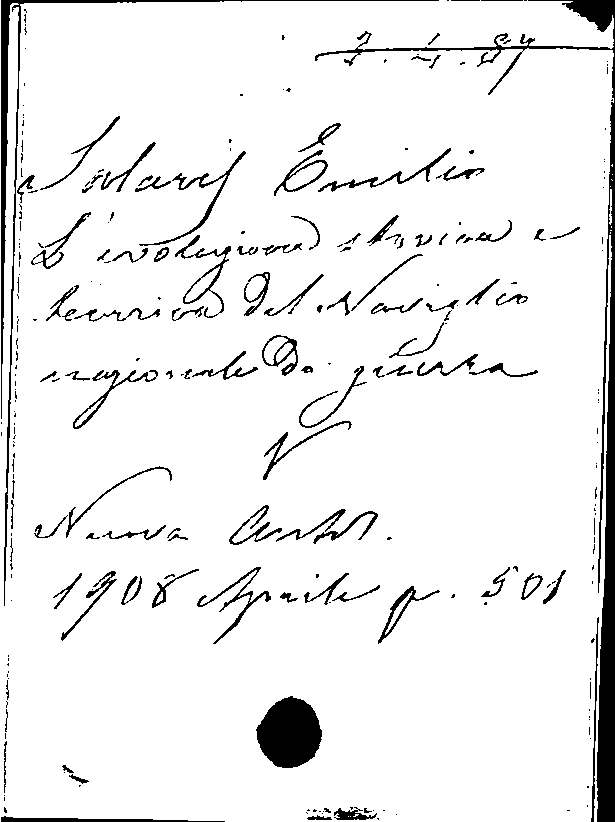 3.4.87
Salaris Emilio
L'evoluzione storica e
tecnica del Naviglio
nazionale da guerra
V
Nuova Antol.
1908 Aprile p. 501